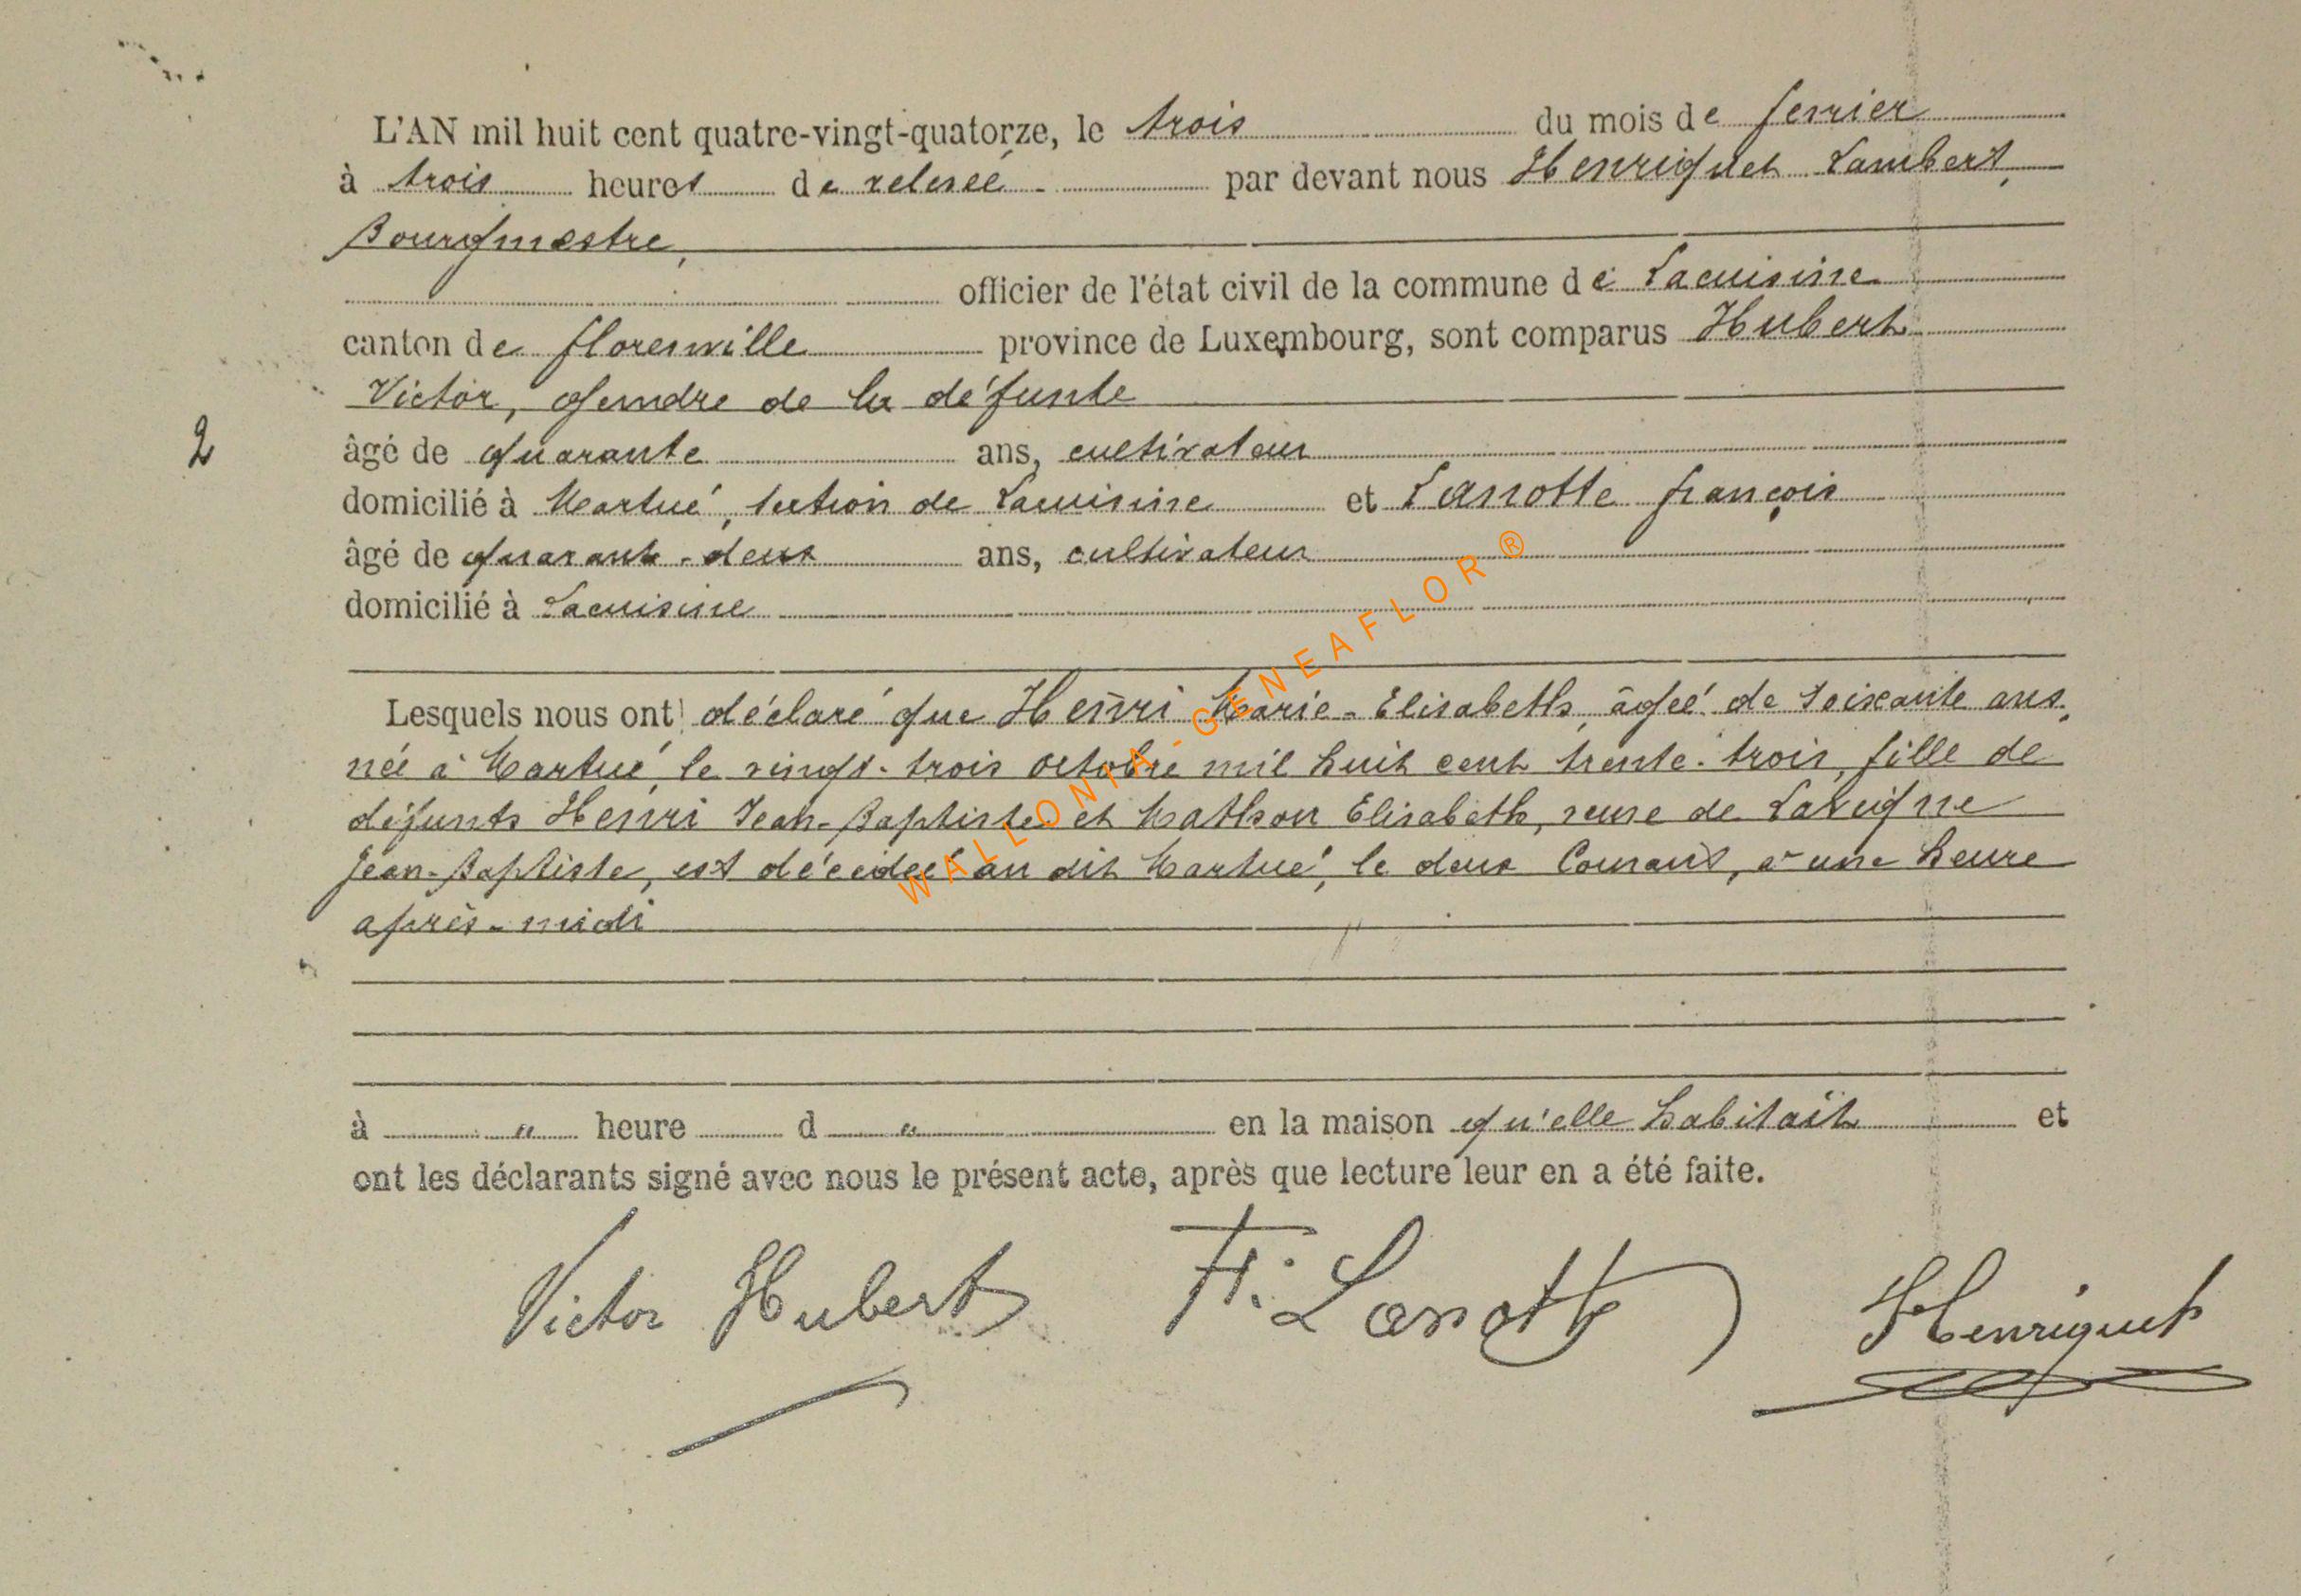 L'AN mil huit cent quatre-vingt-quatorze, le trois du mois de fevrier
à trois heures de relevée par devant nous Henriquet Lambert,
Bourgmestre,
officier de l'état civil de la commune de Lacuisine
canton de florenville province de Luxembourg, sont comparus Hubert
Victor, gendre de la défunte
2
âgé de quarante ans, cultivateur
domicilié à Martué, section de Lacuisine et Lanotte françois
âgé de quarante-deux ans, cultivateur
domicilié à Lacuisine
Lesquels nous ont déclaré que Henri Marie-Elisabeth, âgée de soixante ans,
née à Martué, le vingt-trois octobre mil huit cent trente-trois, fille de
défunts Henri Jean-Baptiste et Mathon Elisabeth, veuve de Lavigne
Jean-Baptiste, est décédée au dit Martué, le deux Courant, à une heure
après-midi
à " heure d " en la maison qu'elle habitait et
ont les déclarants signé avec nous le présent acte, après que lecture leur en a été faite.
Victor Hubert F. Lanotte Henriquet
WALLONIA-GENEAFLOR ®